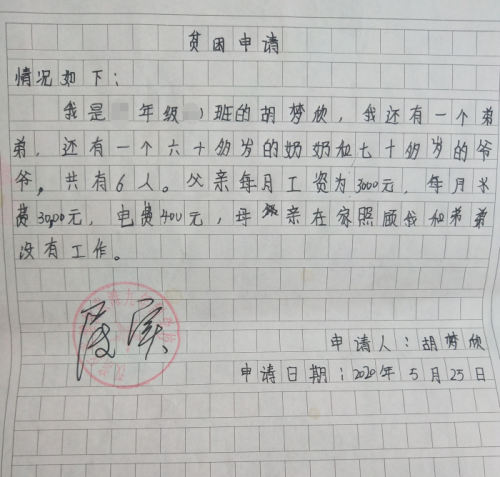 贫困申请
情况如下：
我是年级）班的胡梦欣，我还有一个弟
弟，还有一个六十多岁的奶奶和七十多岁的爷
爷，共有6人。父亲每月工资为3000元，每月水
费3000元，电费400元，母亲在家照顾我和弟弟
没有工作。
申请人：胡梦欣
申请日期：2020年5月25日